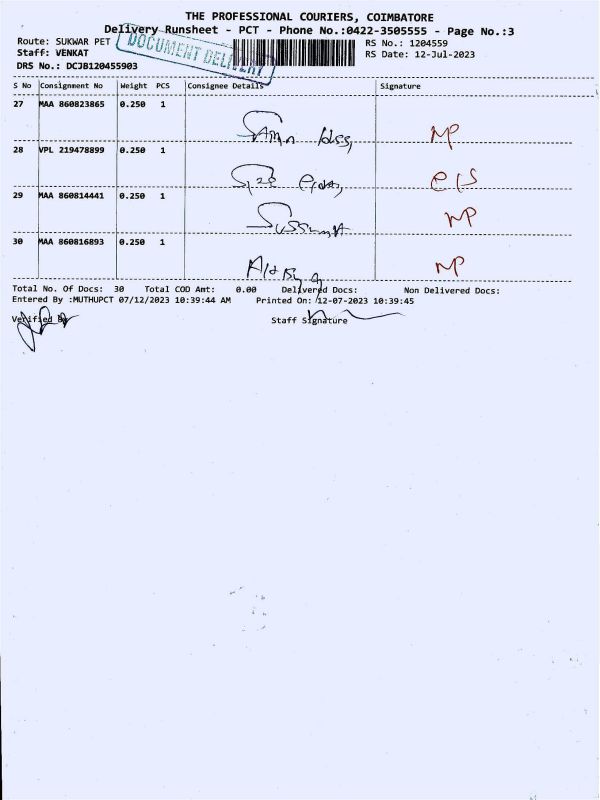 THE PROFESSIONAL COURIERS, COIMBATORE
Delivery Runsheet - PCT - Phone No.:0422-3505555 - Page No.:3
Route: SUKWAR PET
DOCUMENT DELIVERY
RS No.: 1204559
Staff: VENKAT
RS Date: 12-Jul-2023
DRS No.: DCJB120455903
S No Consignment No Weight PCS Consignee Details Signature
27 MAA 860823865 0.250 1
NP
28 VPL 219478899 0.250 1
29 MAA 860814441 0.250 1
NP
30 MAA 860816893 0.250 1
NP
Total No. Of Docs: 30 Total COD Amt: 0.00 Delivered Docs: Non Delivered Docs:
Entered By :MUTHUPCT 07/12/2023 10:39:44 AM Printed On: 12-07-2023 10:39:45
Verified By
Staff Signature